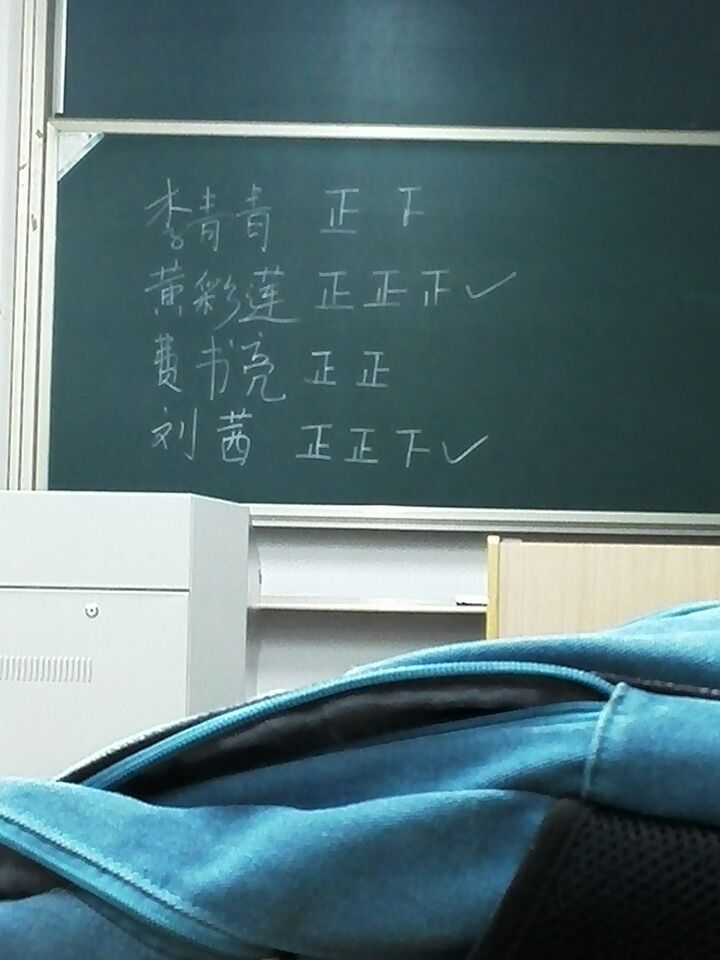 李青青 正 下
黄彩莲 正 正 正 ✓
费书亮 正 正
刘茜 正 正 下 ✓